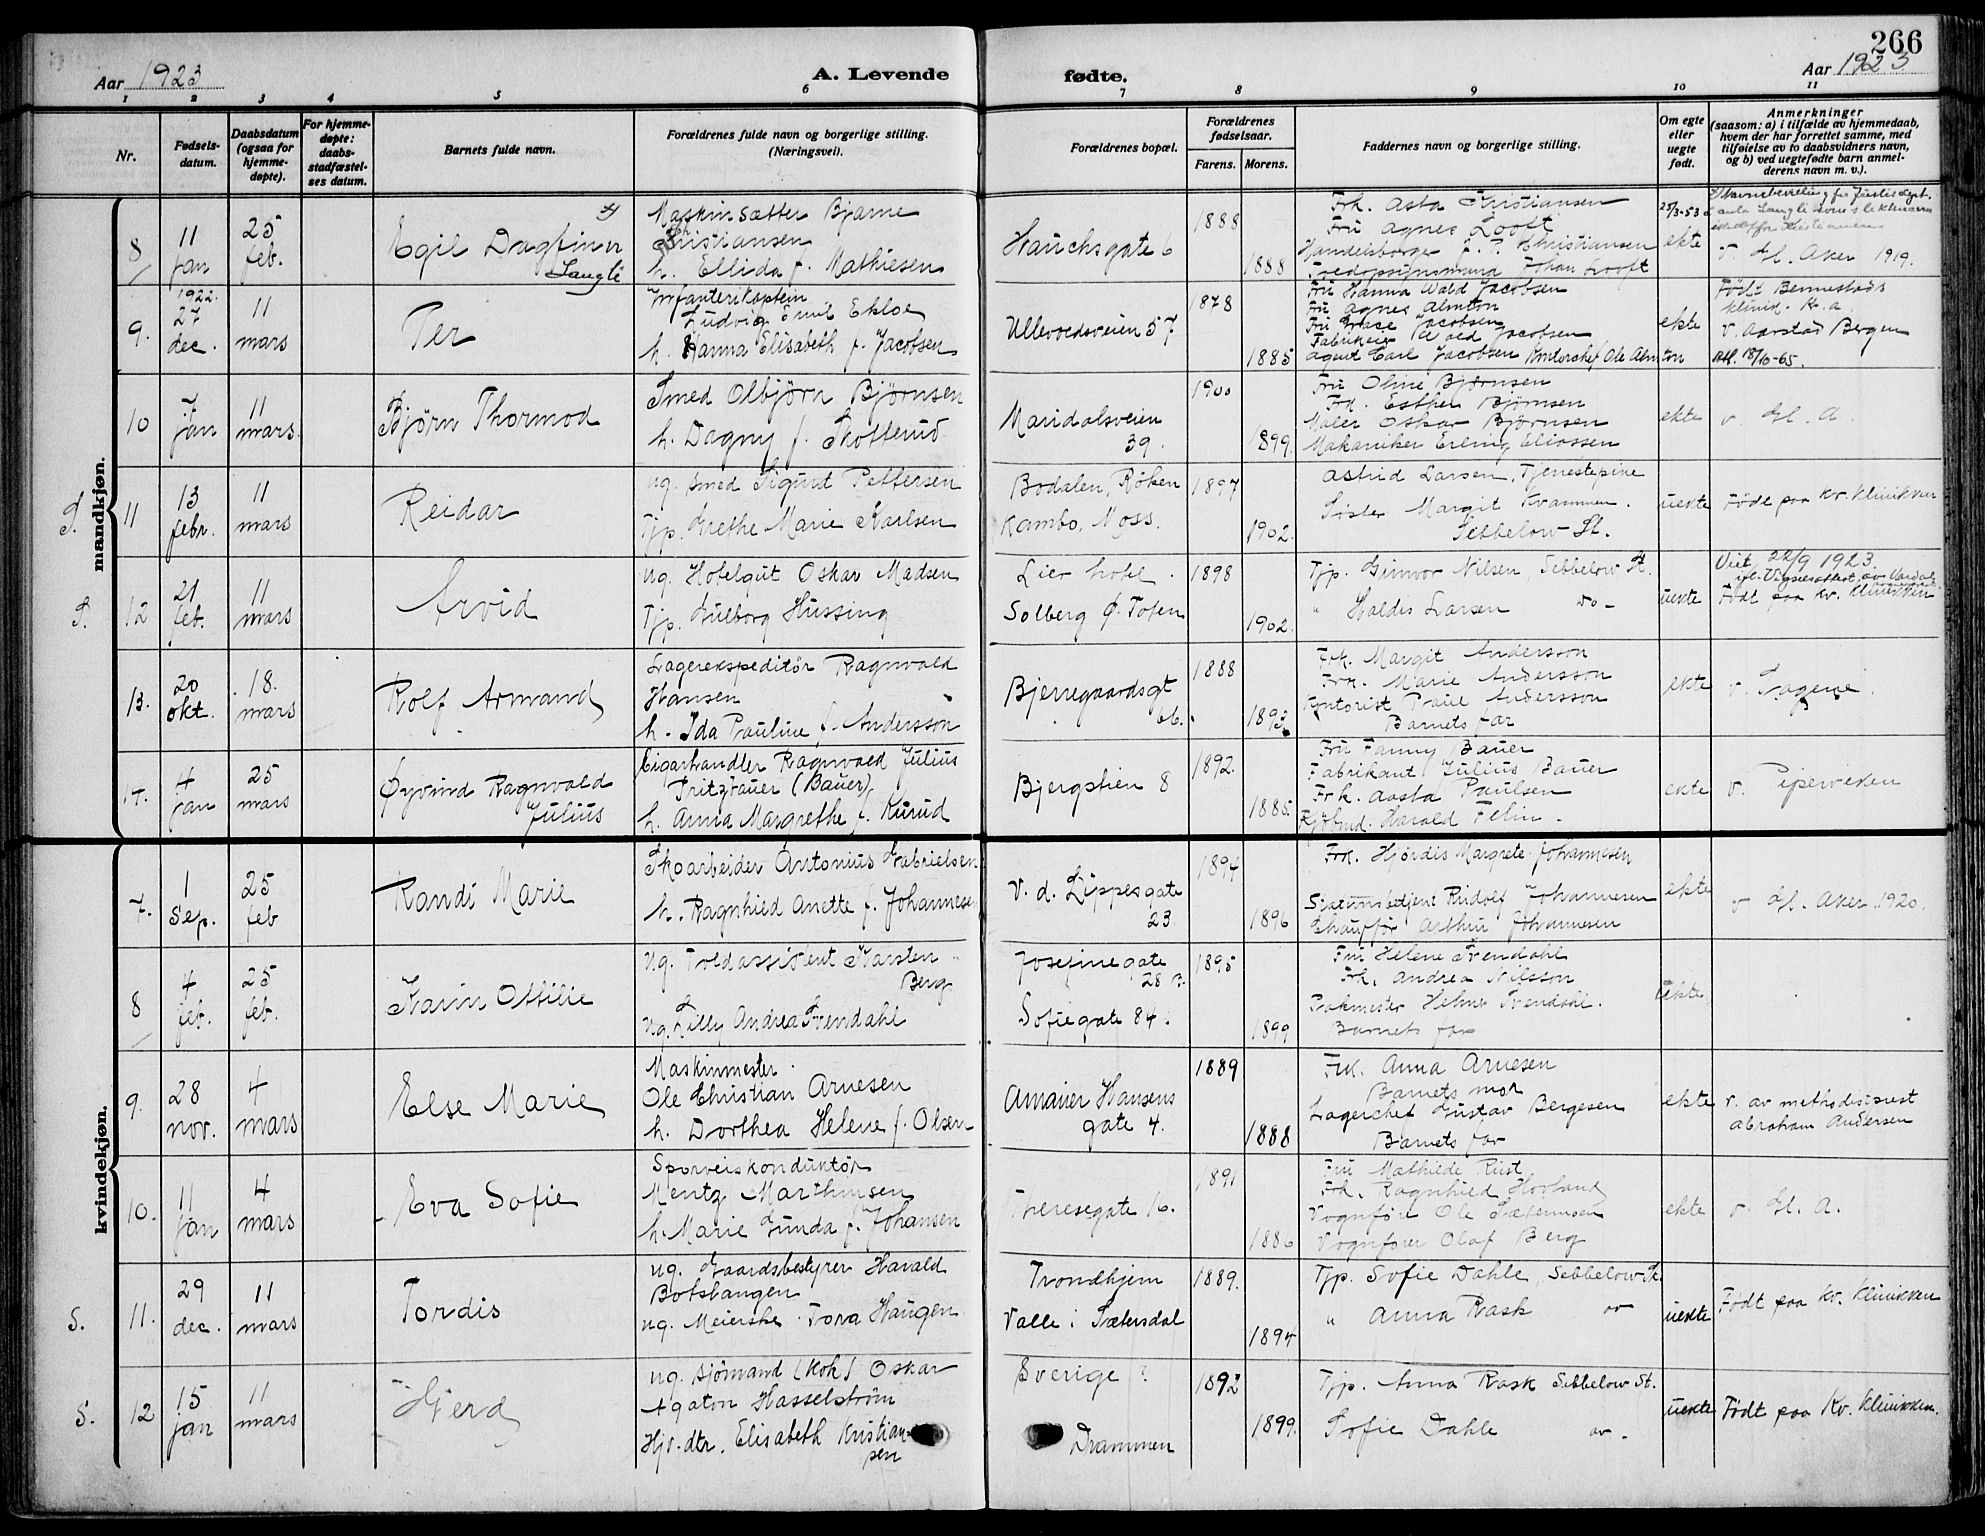 266
Aar 1923
A. Levende
fødte.
Aar 1923
1 2 3 4 5 6 7 8 9 10 11
Nr.
Fødsels-
datum.
Daabsdatum
(ogsaa for
hjemme-
døpte).
For hjemme-
døpte:
daabs-
stadfæstel-
ses datum.
Barnets fulde navn.
Forældrenes fulde navn og borgerlige stilling.
(Næringsvei).
Forældrenes bopæl.
Forældrenes
fødselsaar.
Farens. Morens.
Faddernes navn og borgerlige stilling.
Om egte
eller
uegte
født.
Anmerkninger
(saasom: a) i tilfælde av hjemmedaab,
hvem der har forrettet samme, med
tilføielse av to daabsvidners navn,
og b) ved uegtefødte barn anmel-
derens navn m. v.).
mandkjøn.
8
11
jan
25
feb.
Egil Dagfinn
Langli
Maskinsætter Bjarne
Kristiansen
h. Ellida f. Mathiesen
Hauchsgate 6
1888
1888
Frk. Asta Kristiansen
Fru Agnes Looft
Handelsborger J. P. Christiansen
Johan Looft
25/3-53
ekte
v. Gl. Aker 1919.
9.
1922.
27
dec.
11
mars
Per
Infanterikaptein
Ludvig Emil Ekloe
h. Hanna Elisabeth f. Jacobsen
Ullevoldsveien 57
1878
1885
Fru Hanna Wald Jacobsen
Fru Agnes Almton
Fru Grace Jacobsen
Fabrikeier Wald Jacobsen
agent Carl Jacobsen Kontorchef Ole Almton
ekte
Født Bennestads
klinik. Kr.a
v. Aarstad Bergen
Att. 18/10-65.
10
7
jan
11
mars.
Bjørn Thormod
Smed Olbjørn Bjørnsen
h. Dagny f. Skotterud
Maridalsveien
39.
1900
1899.
Fru Oline Bjørnsen
Frk. Esther Bjørnsen
Maler Oskar Bjørnsen
Mekaniker Erling Eliassen
ekte
v. Gl. A.
S.
11
13
febr.
11
mars
Reidar
ug. Smed Sigurd Pettersen
Tjp. Grethe Marie Karlsen
Bodalen, Røken
Kambo, Moss.
1897
1902.
Astrid Larsen, Tjenestepine
Søster Margit Kvammen.
Sebbelow St.
uekte
Født paa kv. klinikken
S.
12
21
feb.
11
mars
Arvid
ug. Hotelgut Oskar Madsen
Tjp. Gulborg Hussing
Lier hotel.
Solberg Ø. Toten
1898
1902.
Tjp. Gunvor Nilsen, Sebbelow St.
" Haldis Larsen do -
uekte
Viet 22/9 1923.
ifl. Vigselsattest av Vardal
Født paa kv. klinikken
13.
20
okt.
18.
mars
Rolf Armand
Lagerekspeditør Ragnvald
Hansen
h. Ida Pauline f. Andersson
Bjerregaardsgt
6b.
1888
1893.
Frk. Margit Andersson
Frk. Marie Andersson
Kontorist Paul Andersson
Barnets far
ekte
v. Sagene.
14.
4
jan
25
mars
Øyvind Ragnvald
Julius
Cigarhandler Ragnvald Julius
Pritzbauer (Bauer)
h. Anna Margrethe f. Kurud
Bjergstien 8
1892.
1885.
Fru Fanny Bauer
Fabrikant Julius Bauer
Frk. Aasta Paulsen
Kjøbmd. Harald Felin.
ekte
v. Piperviken
kvindekjøn.
7.
1
sep.
25
feb
Randi Marie
Skoarbeider Antonius Gabrielsen
h. Ragnhild Anette f. Johannesen
V. d. Lippesgate
23
1894
1896
Frk. Hjørdis Margrete Johannesen
Stasionsbetjent Rudolf Johannesen
Chauffør Arthur Johannesen
ekte
v Gl. Aker 1920.
8
4
feb.
25
feb.
Karin Ottilie
ug. Toldassistent Karsten
Berg
ug. Lilly Andrea Svendahl
Josefinegate
28 B.
Sofiegate 84.
1895
1899
Fru Helene Svendahl
Frk. Andrea Nilsson
Pakmester Helmer Svendahl.
Barnets far
Uekte
9.
28
nov.
4
mars
Else Marie
Maskinmester
Ole Christian Arnesen
h. Dorthea Helene f. Olsen
Amaver Hansens
gate 4.
1889
1888
Frk. Anna Arnesen
Barnets mor
Lagerchef Gustav Bergesen
Barnets far
ekte
v. av methodistpræst
Abraham Andersen
10.
11
jan
4
mars
Eva Sofie
Sporveiskonduktør
Mentz Marthinsen
h. Marie Gunda f. Johansen
Theresegate 16.
1891
1886
Fru Mathilde Rust
Frk. Ragnhild Hovland
Vognfører Ole Sætermsen
Vognfører Olaf Berg
ekte
v. Gl. A.
S.
11.
29
dec.
11
mars
Tordis
ug. Gaardsbestyrer Harald
Botslangen
ug. Meierske Tora Haugen
Trondhjem
Valle i Sætersdal
1889.
1894
Tjp. Sofie Dahle, Sebbelow St.
" Anna Rask do
uekte
Født paa kv. klinikken
S.
12
15
jan
11
mars
Gjerd
ug. Sjømand (Kok) Oskar
Agaton Hasselstrøm
Hjv. dtr. Elisabeth Kristian-
sen
Sverige ?
Drammen
1892
1899.
Tjp. Anna Rask Sebbelow St.
Sofie Dahle do -
uekte
Født paa Kv. klinikken.